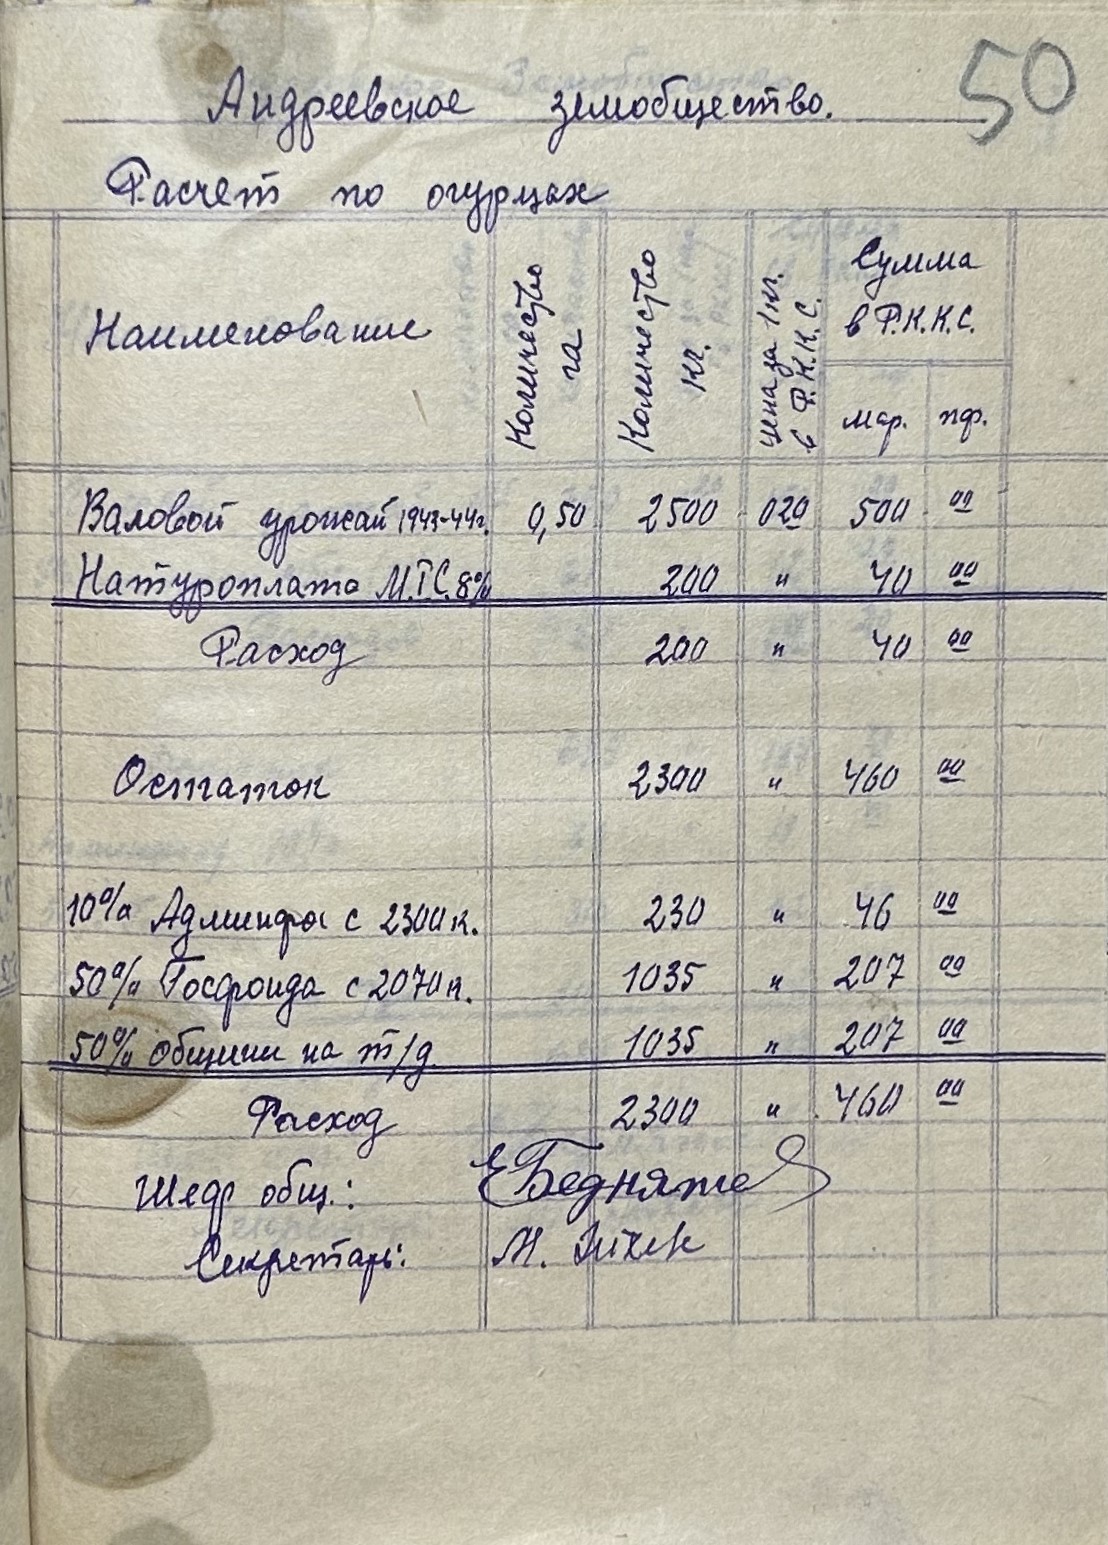 50
Андреевское земобщество.
Расчет по огурцах
Наименование Количество га Количество кг. цена за 1 кг. в Р.К.К.С. Сумма в Р.К.К.С.
мар. пф.
Валовой урожай 1943-44 г. 0,50 2500 020 500 00
Натуроплата М.Т.С. 8% 200 " 40 00
Расход 200 " 40 00
Остаток 2300 " 460 00
10% Админфа с 2300 к. 230 " 46 00
50% Госфонда с 2070 к. 1035 " 207 00
50% общины на т/д 1035 " 207 00
Расход 2300 " 460 00
общ.:
Секретарь: М.